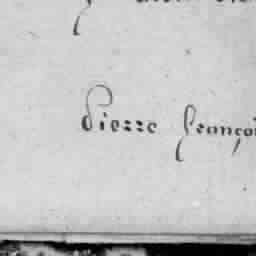 Pierre Françoi